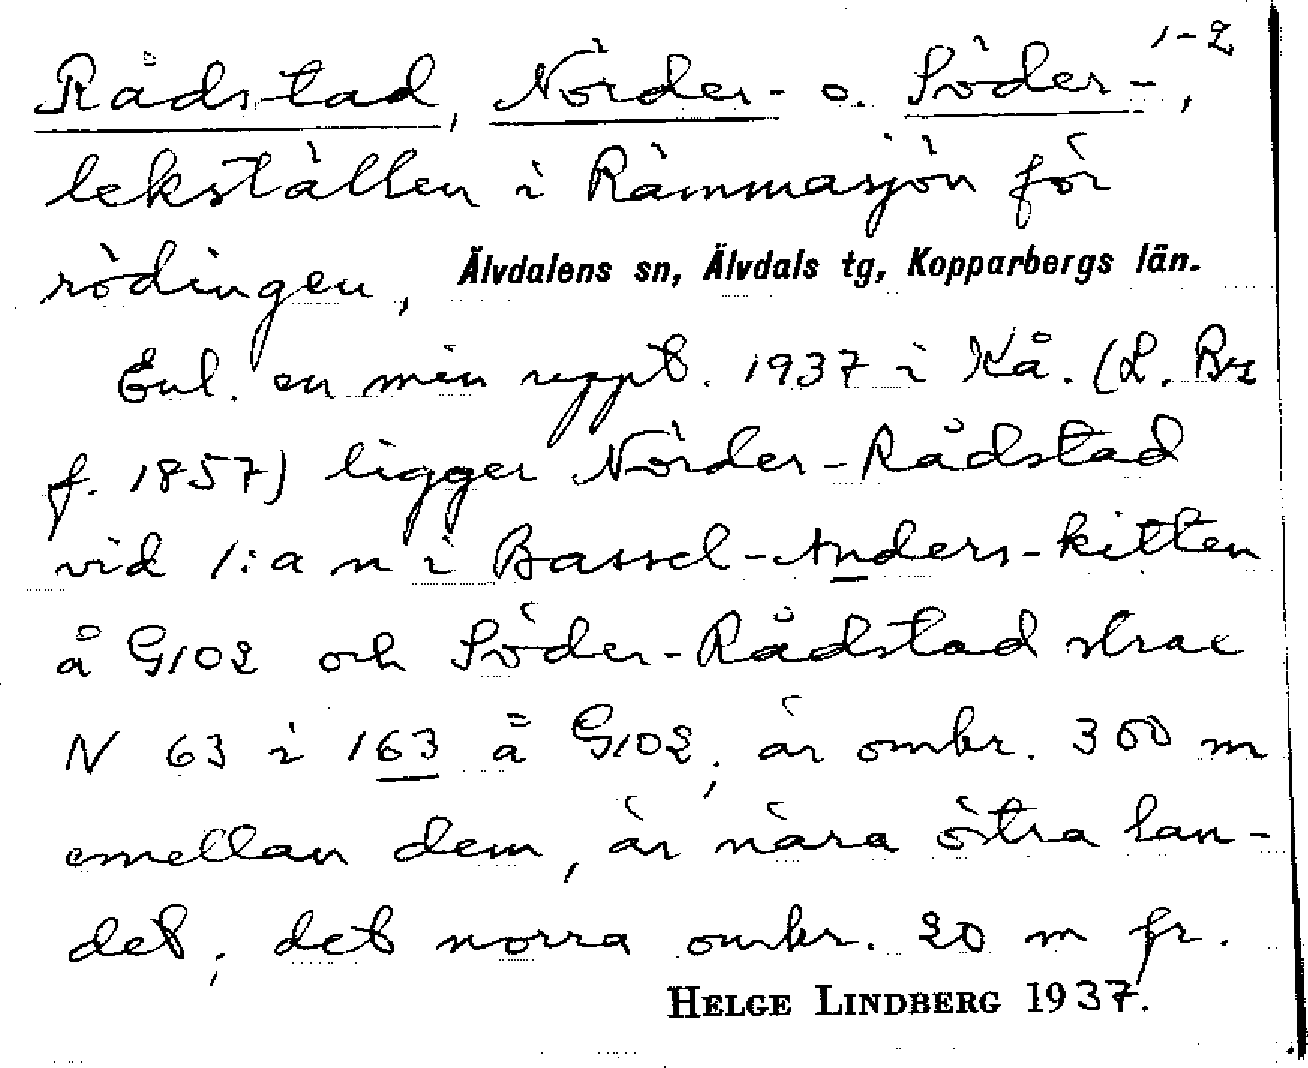 Rådstad, Nörder- o. Söder-, 1-2
lekställen i Rämmasjön för
rödingen, Älvdalens sn, Älvdals tg, Kopparbergs län.
Enl. en min uppt. 1937 i Kå. (L. Br
f. 1857) ligger Nörder-Rådstad
vid 1:a n i Bassel-Anders-kitten
å G102 och Söder-Rådstad strax
N 63 i 163 å G102, är ombr. 300 m
emellan dem, är nära östra lan-
det, det norra ombr. 20 m fr.
HELGE LINDBERG 1937.